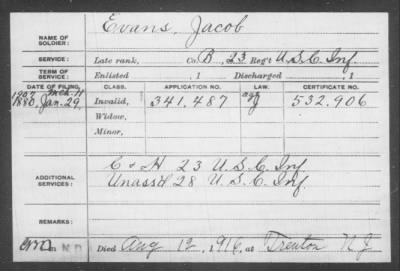 Evans, Jacob
NAME OF SOLDIER:
SERVICE: Late rank, Co. B, 23 Reg't U.S.C. Inf.
TERM OF SERVICE: Enlisted , 1 Discharged , 1
DATE OF FILING. CLASS. APPLICATION NO. LAW. CERTIFICATE NO.
1907 Mch. 11
1880, Jan. 29, Invalid, 341,487 J 532,906
Widow,
Minor,
ADDITIONAL SERVICES:
C & H 23 U.S.C. Inf
Unass'd 28 U.S.C. Inf.
REMARKS:
Died Aug 12, 1916, at Trenton N J